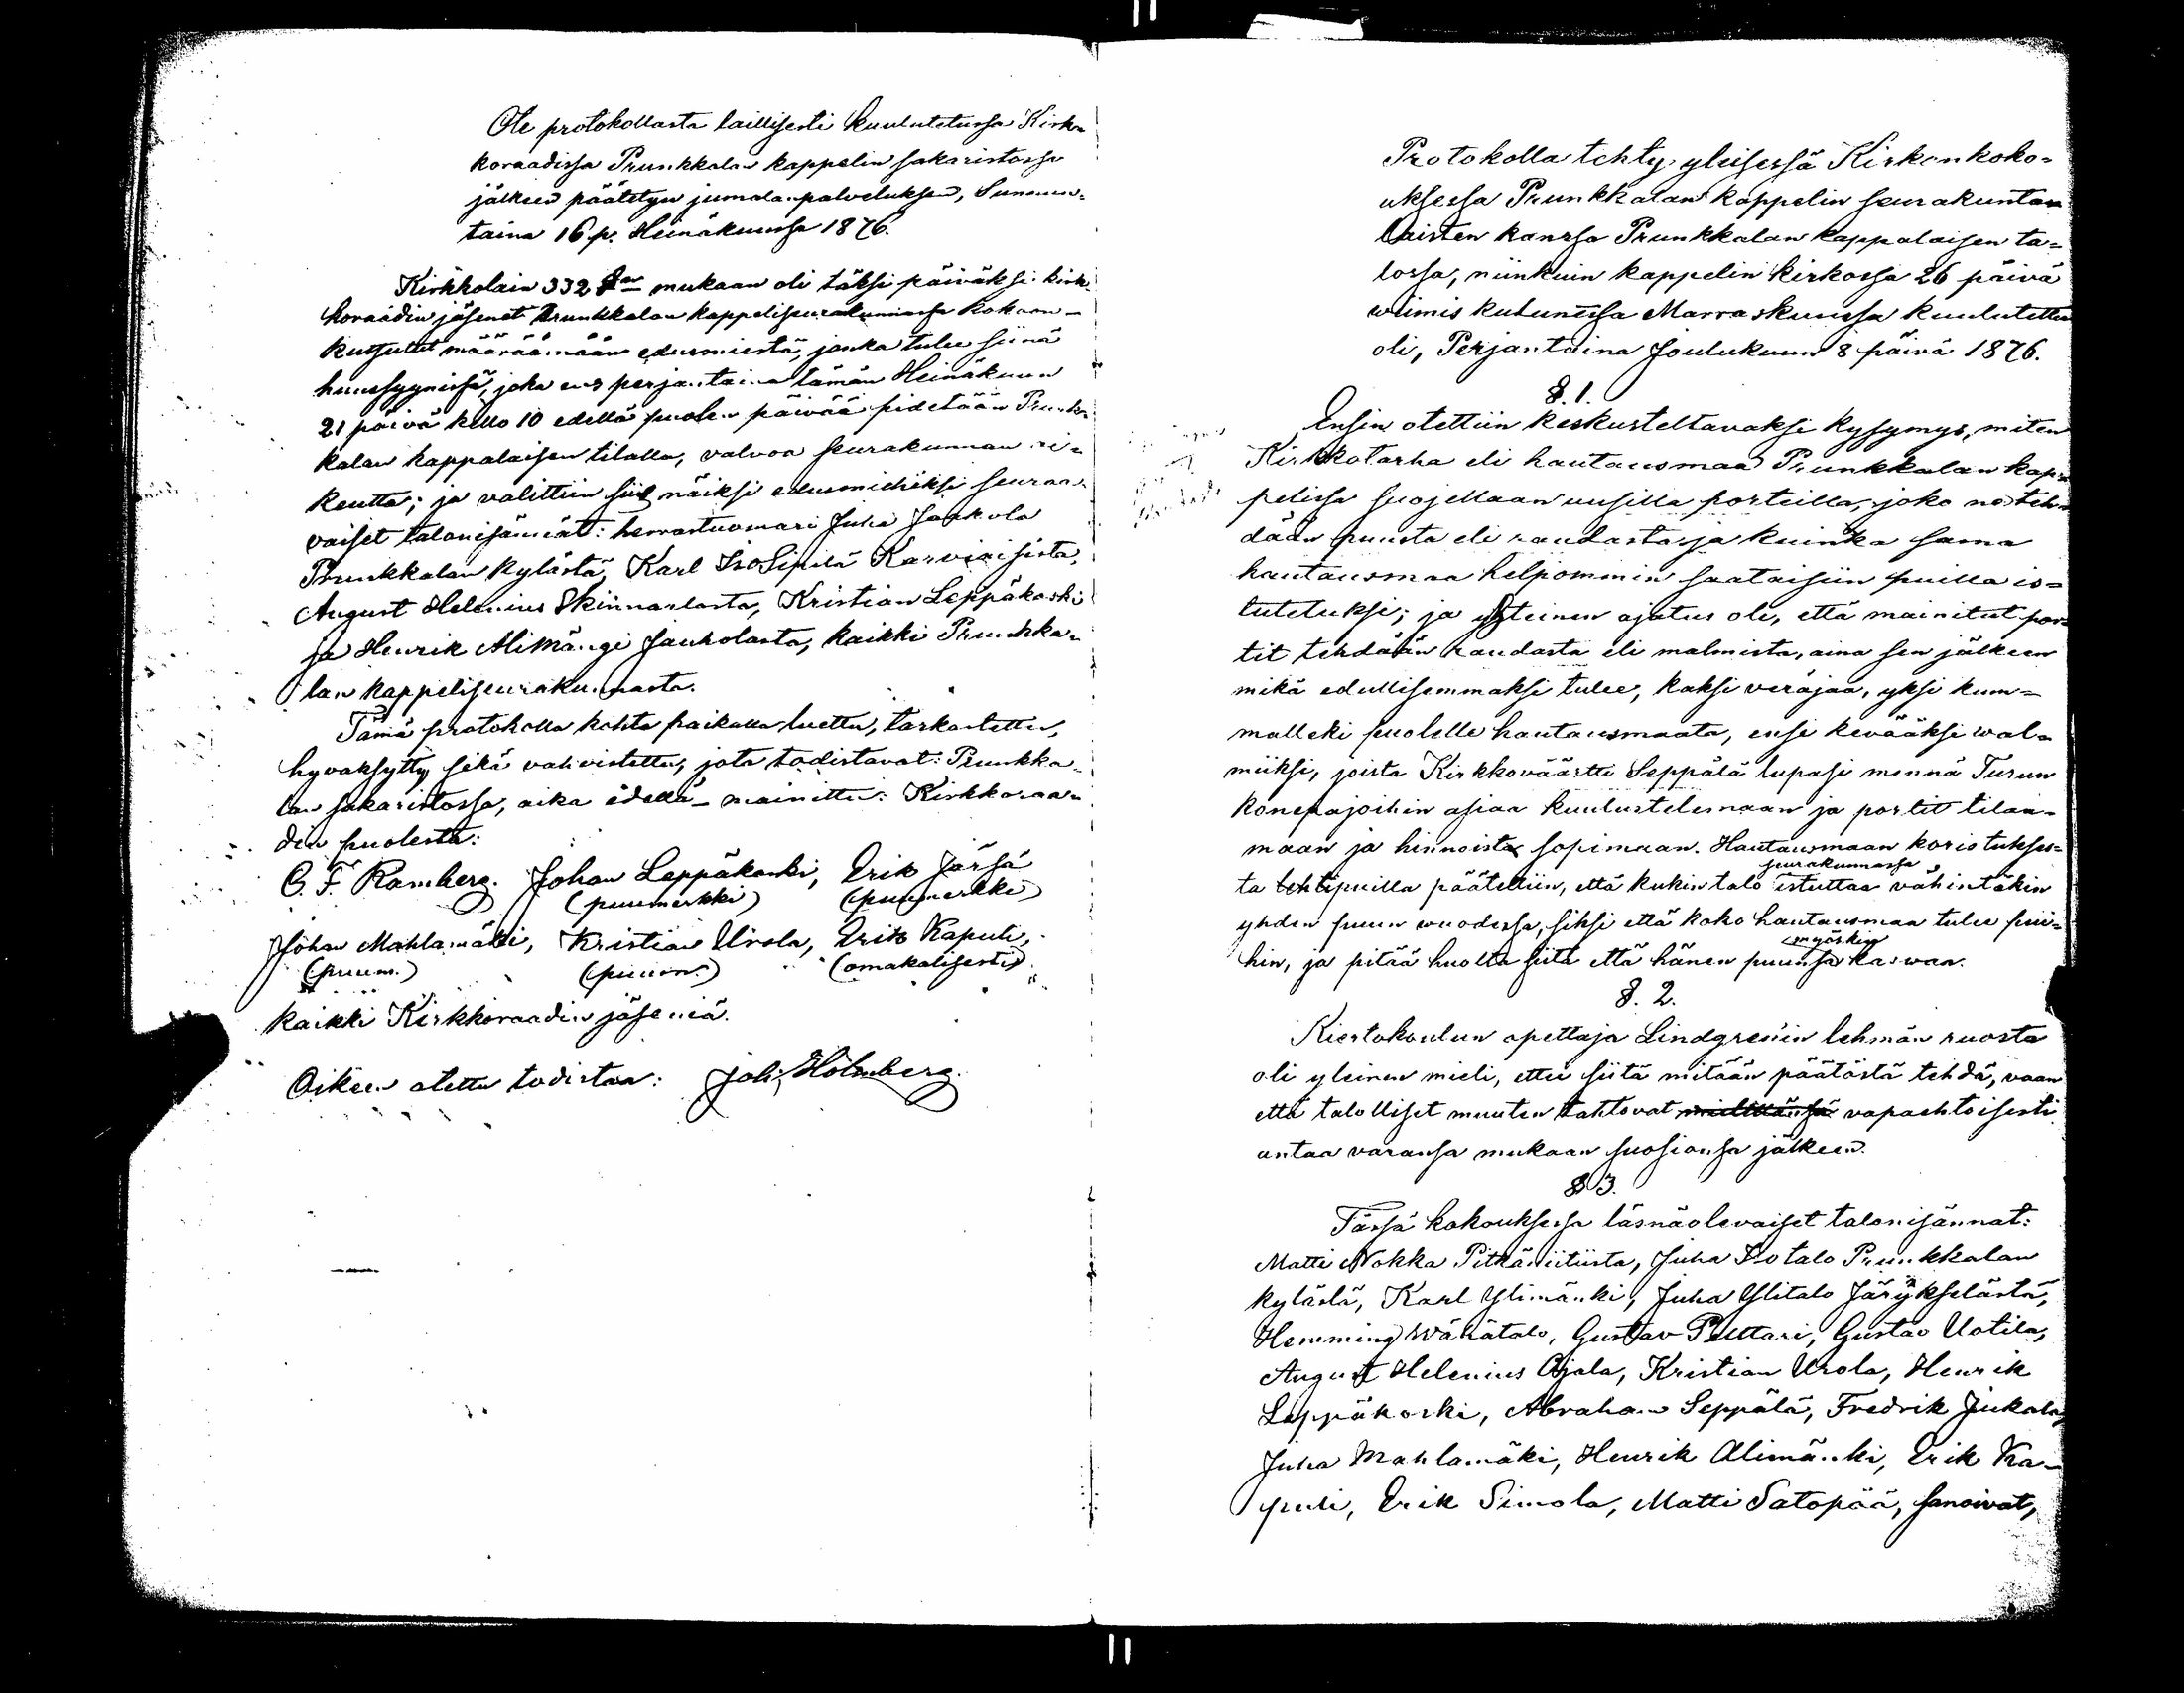 Ote protokollasta laillisesti kuulutetussa Kirk-
koraadissa Prunkkalan kappelin sakaristossa
jälkeen päätetyn jumalanpalveluksen, Sunnun-
taina 16 p. Heinäkuussa 1876.
Kirkkolain 332 § mukaan oli täksi päiväksi kirk-
koraadin jäsenet Prunkkalan kappeliseurakunnassa kokoon-
kutsutut määräämään edusmiestä, jonka tulee siinä
huussyynissä, joka ens perjantaina tämän Heinäkuun
21 päivä kello 10 edellä puolen päivää pidetään Prunk-
kalan kappalaisen tilalla, valvoa seurakunnan oi-
keutta; ja valittiin siis näiksi edusmiehiksi seuraa-
vaiset talonisännät: herrastuomari Juha Jaakola
Prunkkalan kylästä, Karl IsoSipilä Karviaisista,
August Helenius Skinnarlasta, Kristian Leppäkoski
ja Henrik Alimängi Jauholasta, kaikki Prunkka-
lan kappeliseurakunnasta.
Tämä protokolla kohta paikalla luettu, tarkastettu,
hyvaksytty sekä vahvistettu, jota todistavat: Prunkka-
lan sakaristossa, aika edellä-mainittu: Kirkkoraa-
din puolesta:
C. F. Ramberg. Johan Leppäkoski, Erik Järsä
(puumerkki) (puumerkki)
Johan Mahlamäki, Kristian Urola, Erik Kaputi,
(puum.) (puum.) (omakätisesti)
kaikki Kirkkoraadin jäseniä.
Oikeen otettu todistaa: Joh. Holmberg.
Protokolla tehty yleisessä Kirkonkoko-
uksessa Prunkkalan kappelin seurakuntaa
laisten kanssa Prunkkalan kappalaisen ta-
lossa, niinkuin kappelin kirkossa 26 päivä
wiimis kulunessa Marraskuussa kuulutettu
oli, Perjantaina Joulukuun 8 päivä 1876.
§. 1.
Ensin otettiin keskusteltavaksi kysymys, miten
Kirkkotarha eli hautausmaa Prunkkalan kap-
pelissa suojellaan uusilla porteilla, joko ne teh-
dään puusta eli raudasta ja kuinka sama
hautausmaa helpommin saataisiin puilla is-
tutetuksi; ja yhteinen ajatus oli, että mainitut por-
tit tehdään raudasta eli malmista, aina sen jälkeen
mikä edullisemmaksi tulee, kaksi veräjää, yksi kum-
malleki puolelle hautausmaata, ensi kevääksi wal-
miiksi, joista Kirkkoväärtti Seppälä lupasi mennä Turun
konepajoihin asiaa kuulustelemaan ja portit tilaa-
maan ja hinnoista sopimaan. Hautausmaan koristukses-
seurakunnassa
ta lehtipuilla päätettiin, että kukin talo istuttaa vähintäkin
yhden puun wuodessa, siksi että koko hautausmaa tulee pui-
myöskin
hin, ja pitää huolta siitä että hänen puunsa kaswaa.
§. 2.
Kiertokoulun opettaja Lindgren'in lehmän ruosta
oli yleinen mieli, ettei siitä mitään päätöstä tehdä, vaan
että talolliset muuten tahtovat vapaehtoisesti
antaa varansa mukaan suosionsa jälkeen.
§ 3.
Tässä kokouksessa läsnäolevaiset talonisännat:
Matti Nokka Pitkäniitusta, Juha Isotalo Prunkkalan
kylästä, Karl Ylimänki, Juha Ylitalo Järykselästä,
Hemming Wähätalo, Gustav Pelttari, Gustav Uotila,
August Helenius Ojala, Kristian Urola, Henrik
Leppäkoski, Abraham Seppälä, Fredrik Jukola,
Juha Mahlamäki, Henrik Alimänki, Erik Ka-
puti, Erik Simola, Matti Satopää, sanoivat,